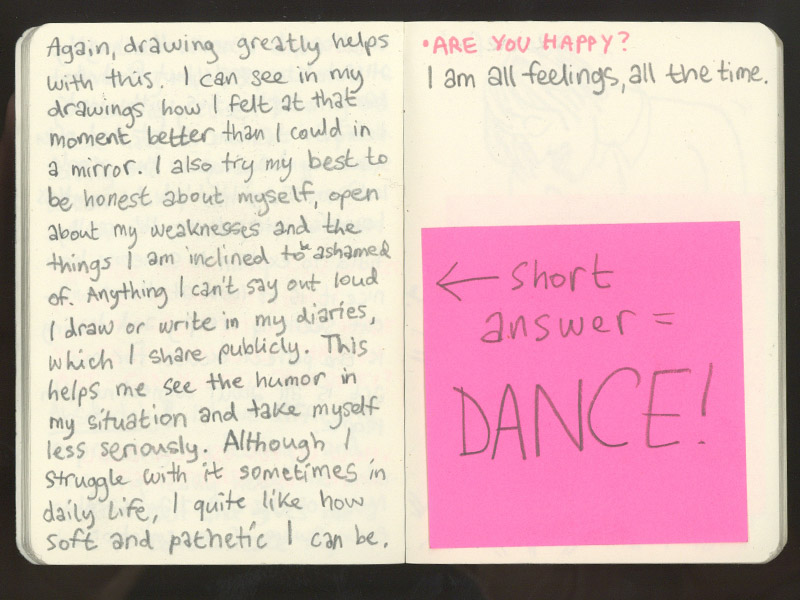 Again, drawing greatly helps
with this. I can see in my
drawings how I felt at that
moment better than I could in
a mirror. I also try my best to
be honest about myself, open
about my weaknesses and the
things I am inclined to be ashamed
of. Anything I can't say out loud
I draw or write in my diaries,
which I share publicly. This
helps me see the humor in
my situation and take myself
less seriously. Although I
struggle with it sometimes in
daily life, I quite like how
soft and pathetic I can be.
•ARE YOU HAPPY?
I am all feelings, all the time.
← short
answer =
DANCE!